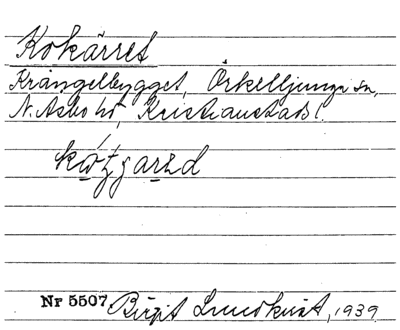 Kokärret
Krångelbygget, Örkelljunga sn,
N. Åsbo hd, Kristianstads l.
Nr 5507. Birgit Lundkvist, 1939